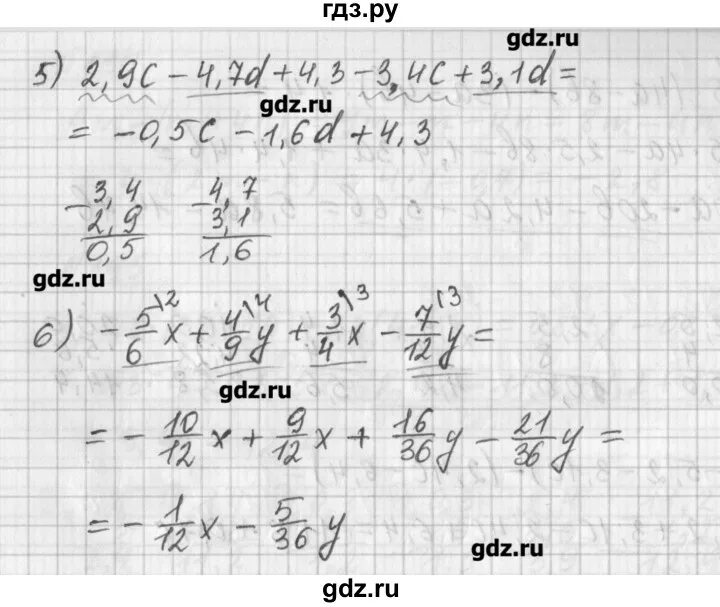 гдз.ру
gdz.ru
5) 2,9c − 4,7d + 4,3 − 3,4c + 3,1d =
gdz.ru
= −0,5c − 1,6d + 4,3
− 3,4 − 4,7
2,9 3,1
0,5 1,6
gdz.ru
6) − 5/6\2 x + 4/9\4 y + 3/4\3 x − 7/12\3 y =
gdz.ru
= − 10/12 x + 9/12 x + 16/36 y − 21/36 y =
= − 1/12 x − 5/36 y
gdz.ru
gdz.ru